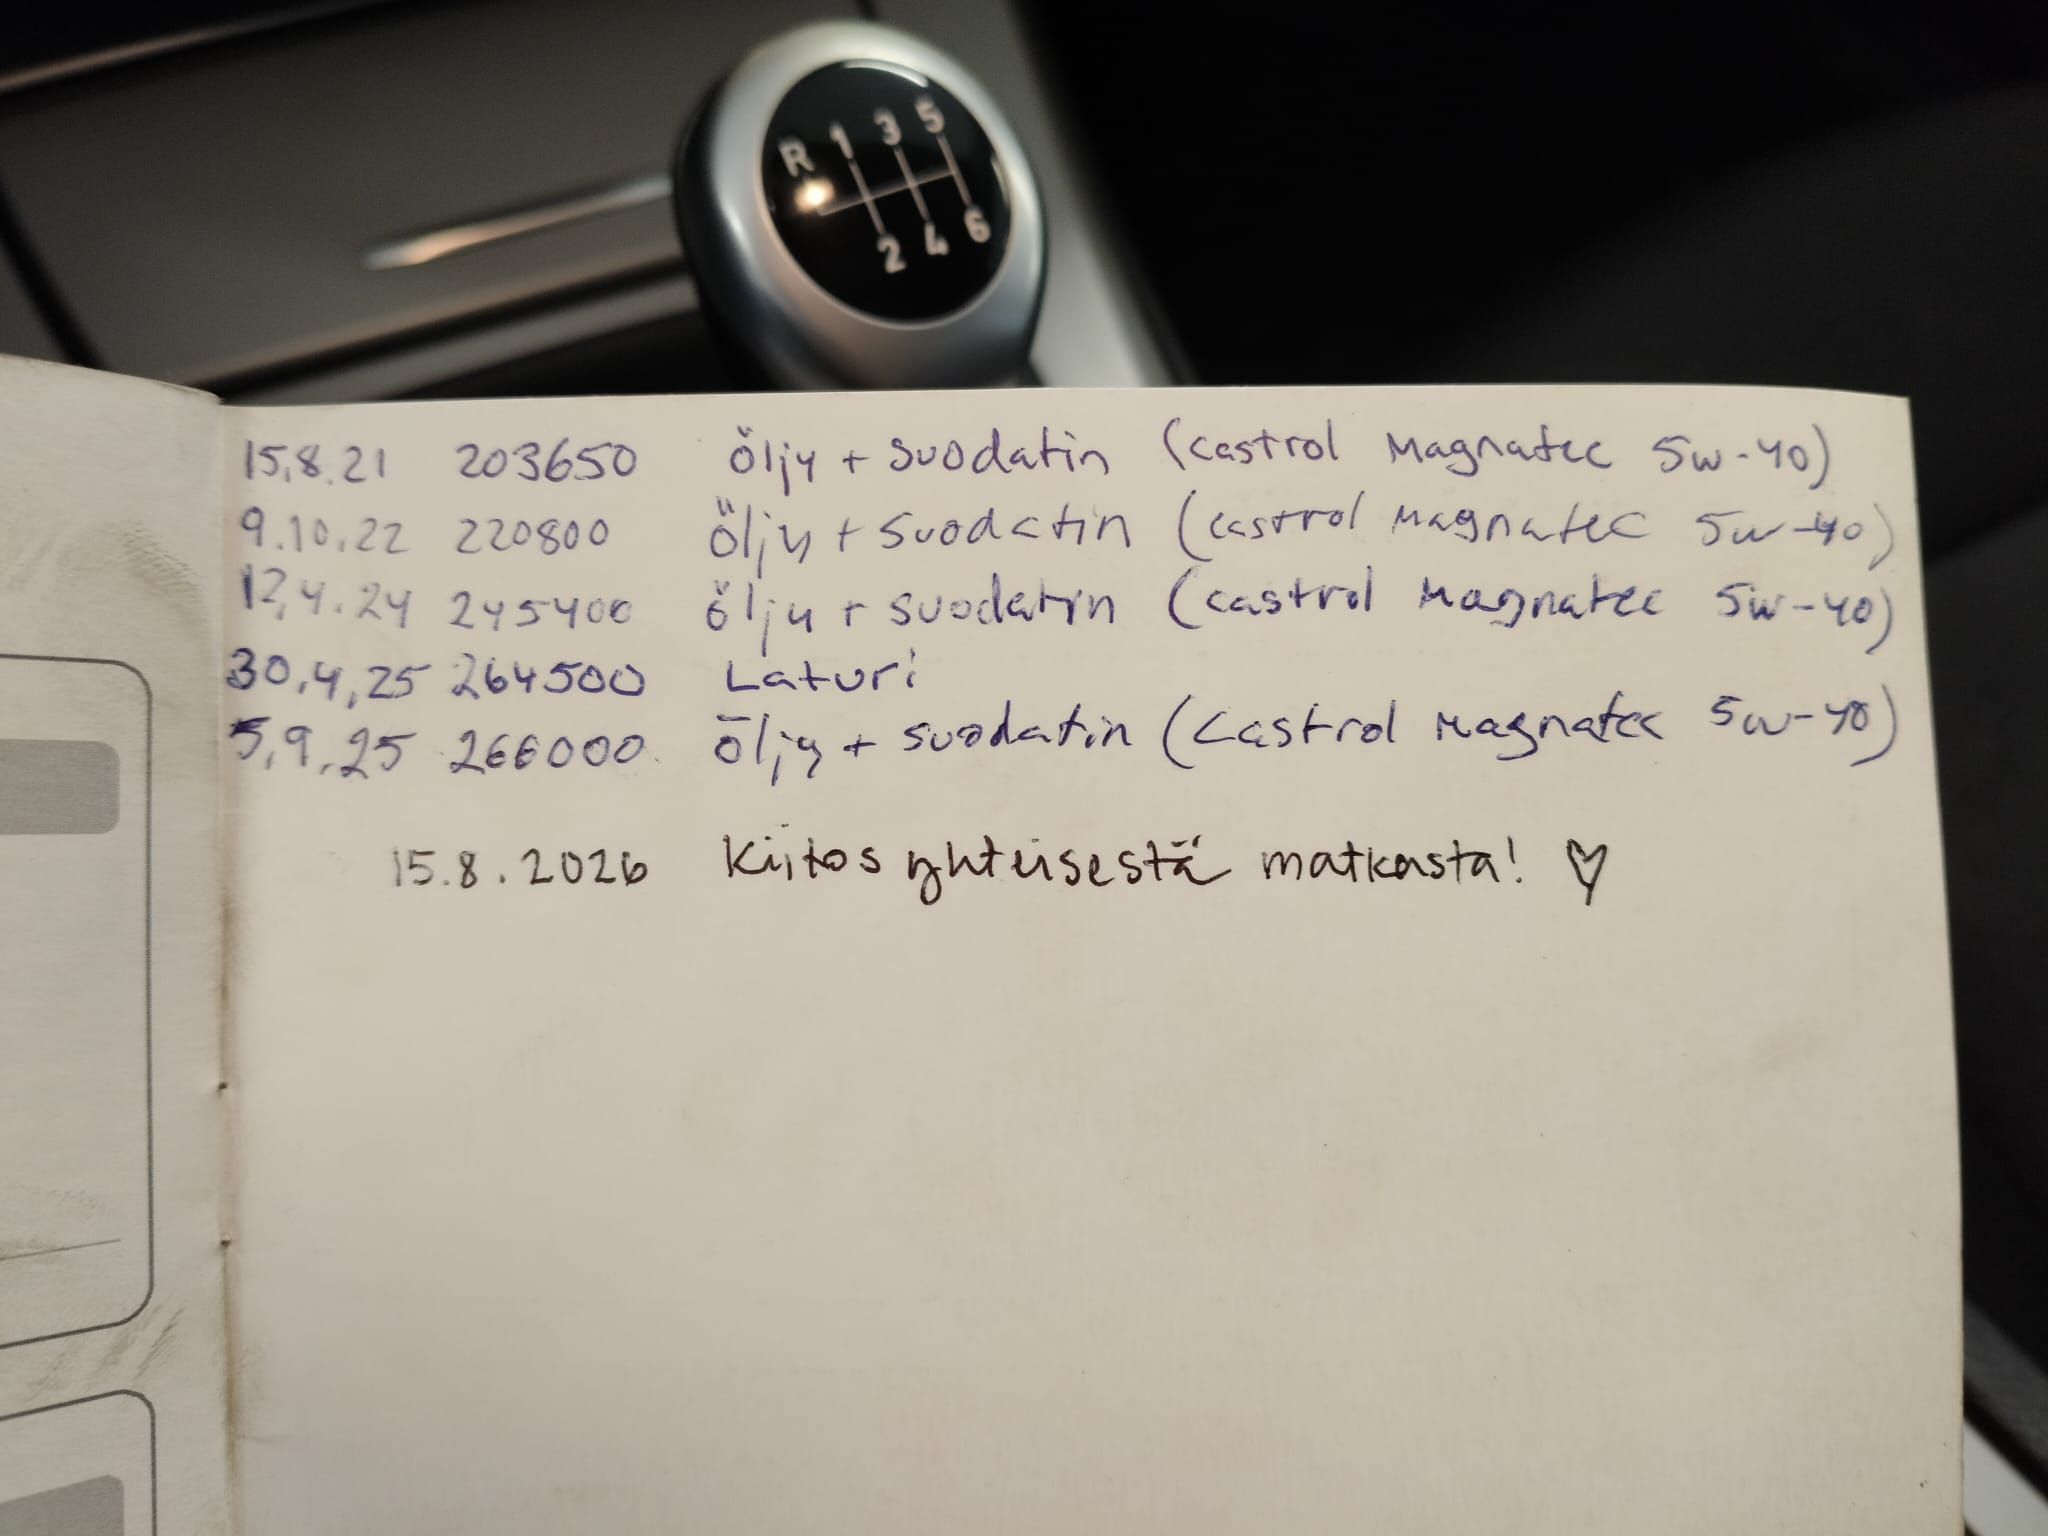 R 1 3 5
2 4 6
15.8.21 203650 öljy + suodatin (castrol Magnatec 5w-40)
9.10.22 220800 öljy + suodatin (castrol Magnatec 5w-40)
12.4.24 245400 öljy + suodatin (castrol Magnatec 5w-40)
30.4.25 264500 Laturi
5.9.25 266000 öljy + suodatin (Castrol Magnatec 5w-40)
15.8.2026 Kiitos yhteisestä matkasta! ♡